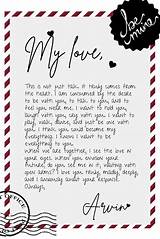 be
mine
My love,
This is not just talk, it truly comes from
the heart. I am consumed by the desire
to be with you, to talk to you, and to
feel you near me. I want to hold you,
laugh with you, rely on you, and I want to
play, walk, dance, and just be anywhere
with you. I think you could become my
everything. I know I want to become
everything to you.
When we are together, I see the love in
your eyes. When you envision your
future, do you see me in it, walking with
you? I love you truly, madly, deeply,
and I assuredly await your response.
Always,
Arvin